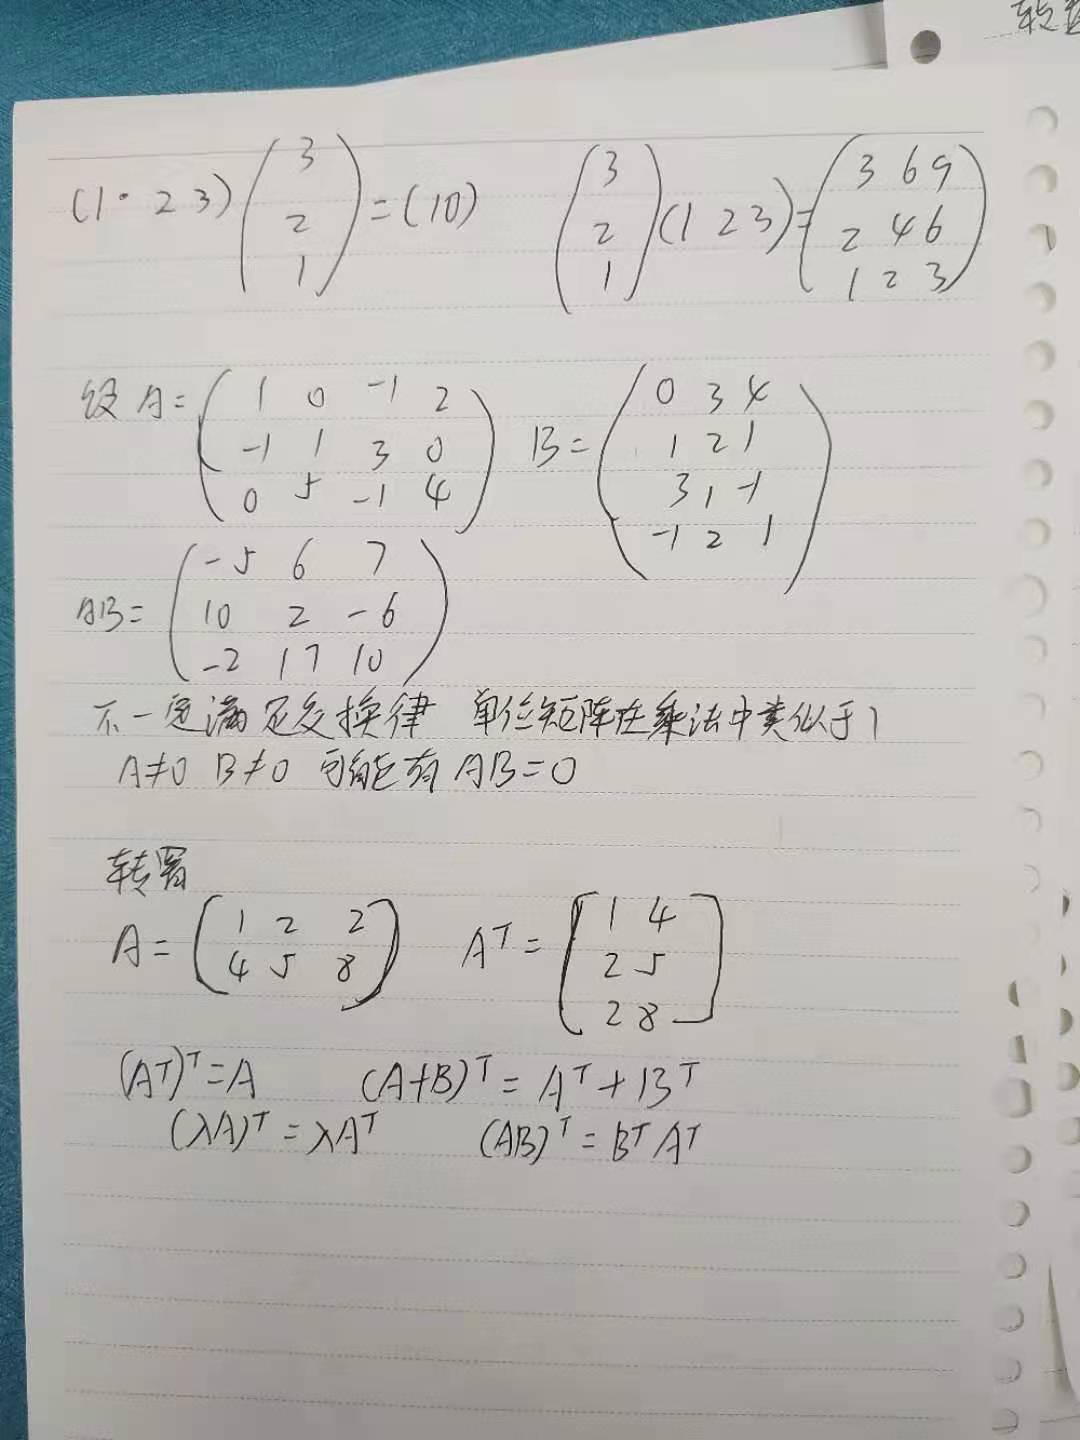 转置
(1·23)(3 2 1)=(10) (3 2 1)(1 2 3)=(3 6 9
2 4 6
1 2 3)
设A=(1 0 -1 2 B=(0 3 4
-1 1 3 0 1 2 1
0 5 -1 4) 3 1 -1
-1 2 1)
AB=(-5 6 7
10 2 -6
-2 17 10)
不一定满足交换律 单位矩阵在乘法中类似于1
A≠0 B≠0 可能有AB=0
转置
A=(1 2 2 Aᵀ=[1 4
4 5 8) 2 5
2 8]
(Aᵀ)ᵀ=A (A+B)ᵀ=Aᵀ+Bᵀ
(λA)ᵀ=λAᵀ (AB)ᵀ=BᵀAᵀ